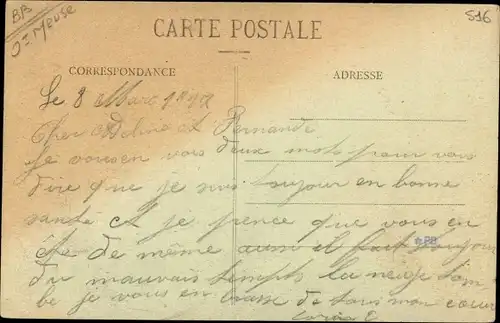 BB
Meuse
516
CARTE POSTALE
CORRESPONDANCE
ADRESSE
Le 8 Mars
Cher et Fernande
Je vous en vois deux mots pour vous
dire que je suis toujour en bonne
santé et je pence que vous en
ête de même aussi il fait toujours
BB
du mauvais temps la neige tom
be je vous en brasse de tous mon cœur